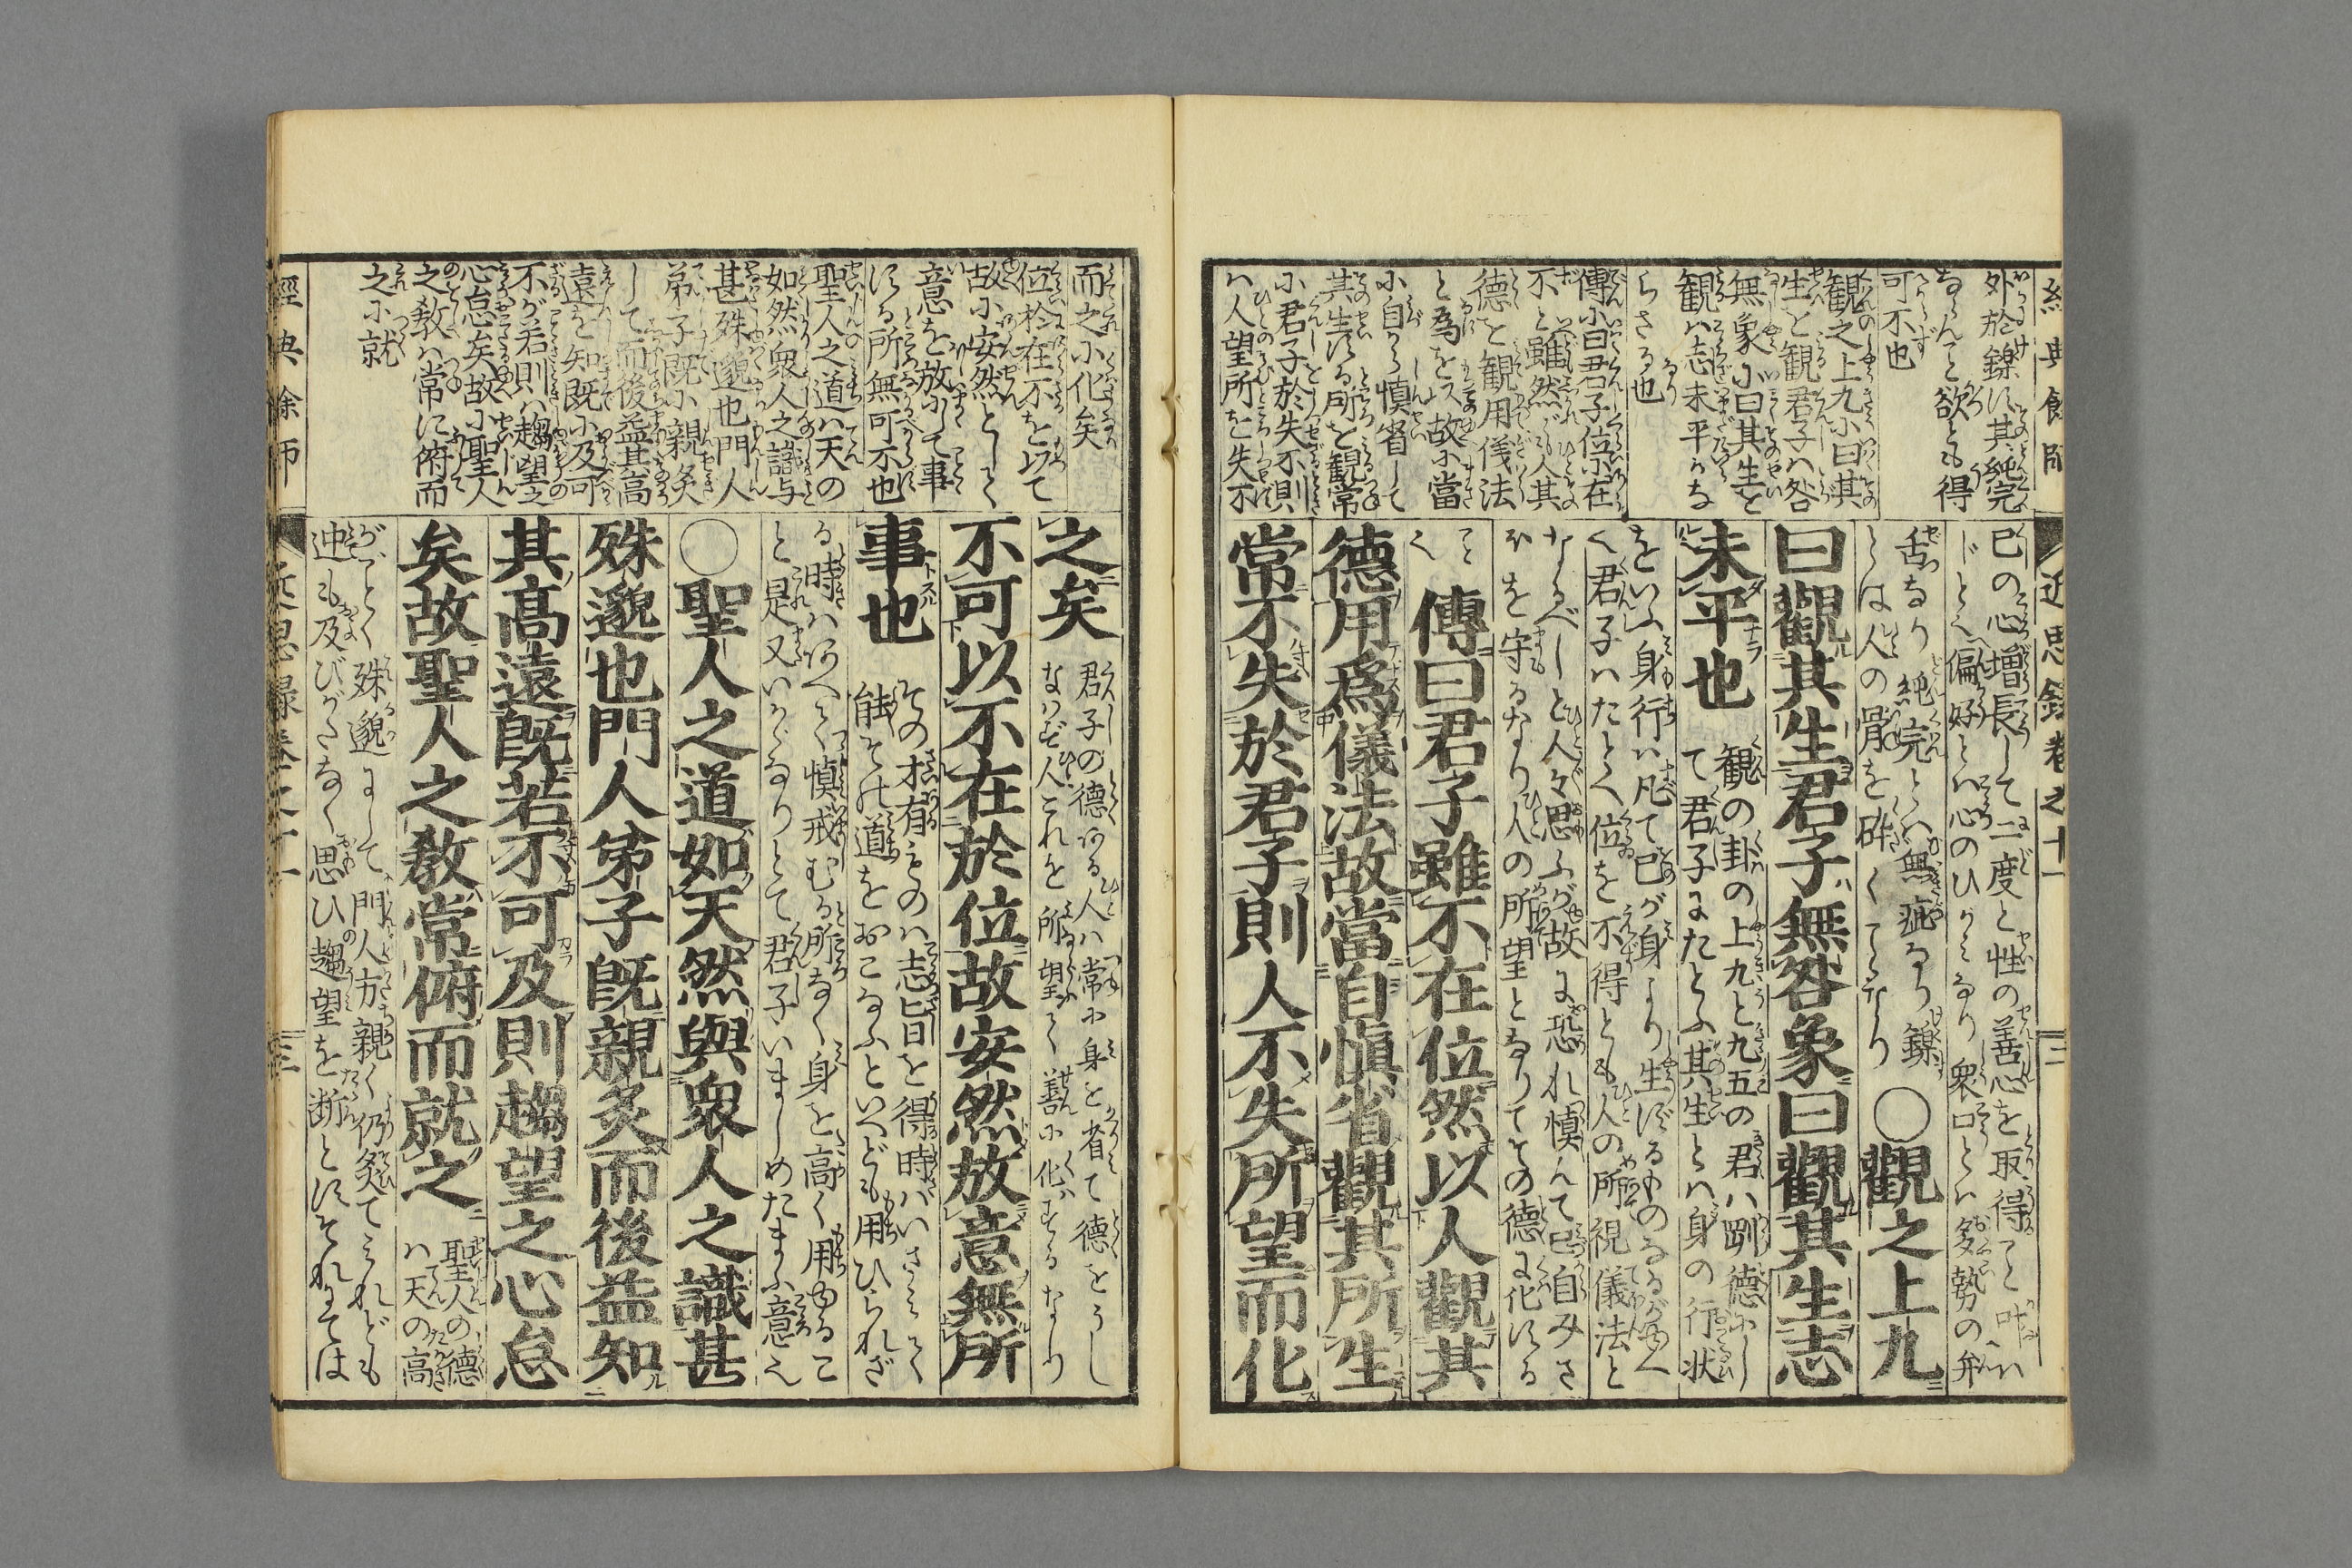 經典餘師
近思録巻之十一
二
外於鑠は其純完
ならんと欲とも得
可不也
観之上九小曰其
生を観君子ハ咎
無象小曰其生を
観ハ志未平ハな
らさる也
傳小曰君子位小在
不と雖然ども人其
德を観用儀法
と為を以故小當
小自から慎省して
其生ほる所を観常
小君子於失不則
ハ人望所を失不
已の心増長して二度と性の善心を取得こと叶ハ
じとく偏好とハ心のひがみなり衆口とハ多勢の弁
舌なり純完とハ無疵なり鑠
とは人の骨を砕くてなり
○觀之上九
曰觀其生君子無咎象曰觀其生志
未平也
観の卦の上九と九五の君ハ剛德小し
て君子にたとふ其生とハ身の行状
をいふ身行ハ凡て已が身より生ずるものなるが故へ
く君子ハたとへ位を不得とも人の所視儀法と
なるべしと人々思ふが故に恐れ慎んで已自みさ
ほを守るなり人の所望となりてその德に化ほる
こと
く
傳曰君子雖不在位然以人觀其
德用爲儀法故當自愼省觀其所生
常不失於君子則人不失所望而化
而之小化矣
位於在不を以て
故小安然として
意を放小して事
ほる所無可不也
聖人之道ハ天の
如然衆人之識与
甚殊邈也門人
弟子既小親炙
して而後益其高
遠を知既小及可
不が若則ハ趨望之
心怠矣故小聖人
之教ハ常に俯而
之小就
之矣
君子の德ある人ハ常小身を省て德をうし
なハず人これを所望て善小化するなり
不可以不在於位故安然放意無所
事也
その才有ものハ志旨を得時ハいさみて
能その道をおこなふといへども用ひられざ
る時ハかへて慎戒むる所なく身を高く用ゆるこ
と是又いかゞなりとて君子いましめたまふ意え
○聖人之道如天然與衆人之識甚
殊邈也門人弟子既親炙而後益知
其高遠既若不可及則趨望之心怠
矣故聖人之教常俯而就之
聖人の德
ハ天の高
がごとく殊邈にして門人方親く仍炙てみれども
迚も及びがたなく思ひ趨望を断とほそれにては
經典餘師
近思録巻之十一
三